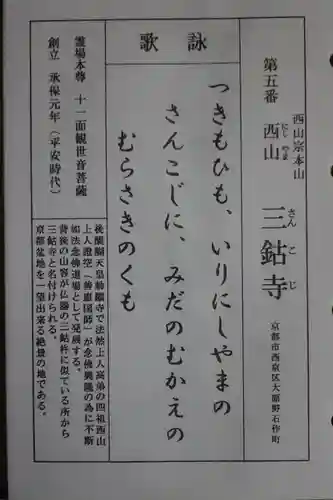 西山宗本山
第五番 西山 三鈷寺
にし やま
さん こ じ
京都市西京区大原野石作町
詠歌
つきもひも、いりにしやまの
さんこじに、みだのむかえの
むらさきのくも
霊場本尊 十一面観世音菩薩
創立 承保元年(平安時代)
後醍醐天皇勅願寺で法然上人高弟の四祖西山
上人證空(善慧国師)が念佛興隆の為に不断
如法念佛道場として発展する。
背後の山容が仏器の三鈷杵に似ている所から
三鈷寺と名付けられる。
京都盆地を一望出来る絶景の地である。